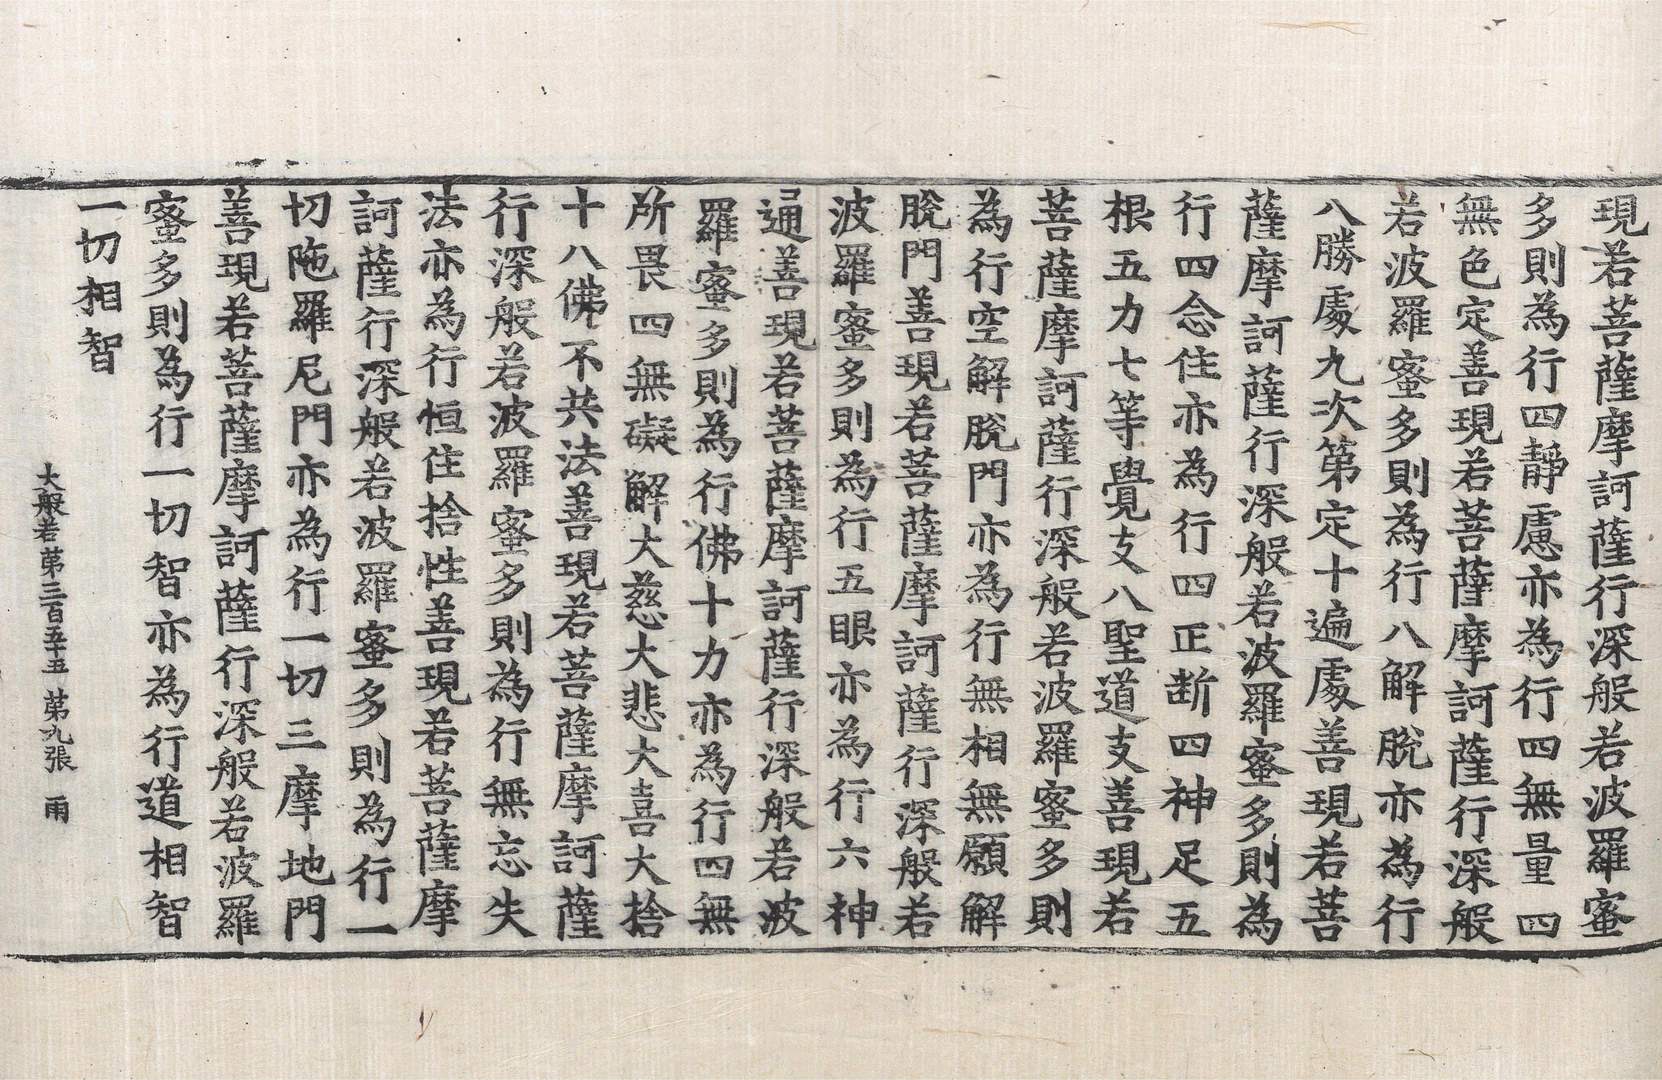 現若菩薩摩訶薩行深般若波羅蜜
多則為行四靜慮亦為行四無量四
無色定善現若菩薩摩訶薩行深般
若波羅蜜多則為行八解脫亦為行
八勝處九次第定十遍處善現若菩
薩摩訶薩行深般若波羅蜜多則為
行四念住亦為行四正斷四神足五
根五力七等覺支八聖道支善現若
菩薩摩訶薩行深般若波羅蜜多則
為行空解脫門亦為行無相無願解
脫門善現若菩薩摩訶薩行深般若
波羅蜜多則為行五眼亦為行六神
通善現若菩薩摩訶薩行深般若波
羅蜜多則為行佛十力亦為行四無
所畏四無礙解大慈大悲大喜大捨
十八佛不共法善現若菩薩摩訶薩
行深般若波羅蜜多則為行無忘失
法亦為行恒住捨性善現若菩薩摩
訶薩行深般若波羅蜜多則為行一
切陁羅尼門亦為行一切三摩地門
善現若菩薩摩訶薩行深般若波羅
蜜多則為行一切智亦為行道相智
一切相智
大般若第三百五十五 第九張 雨